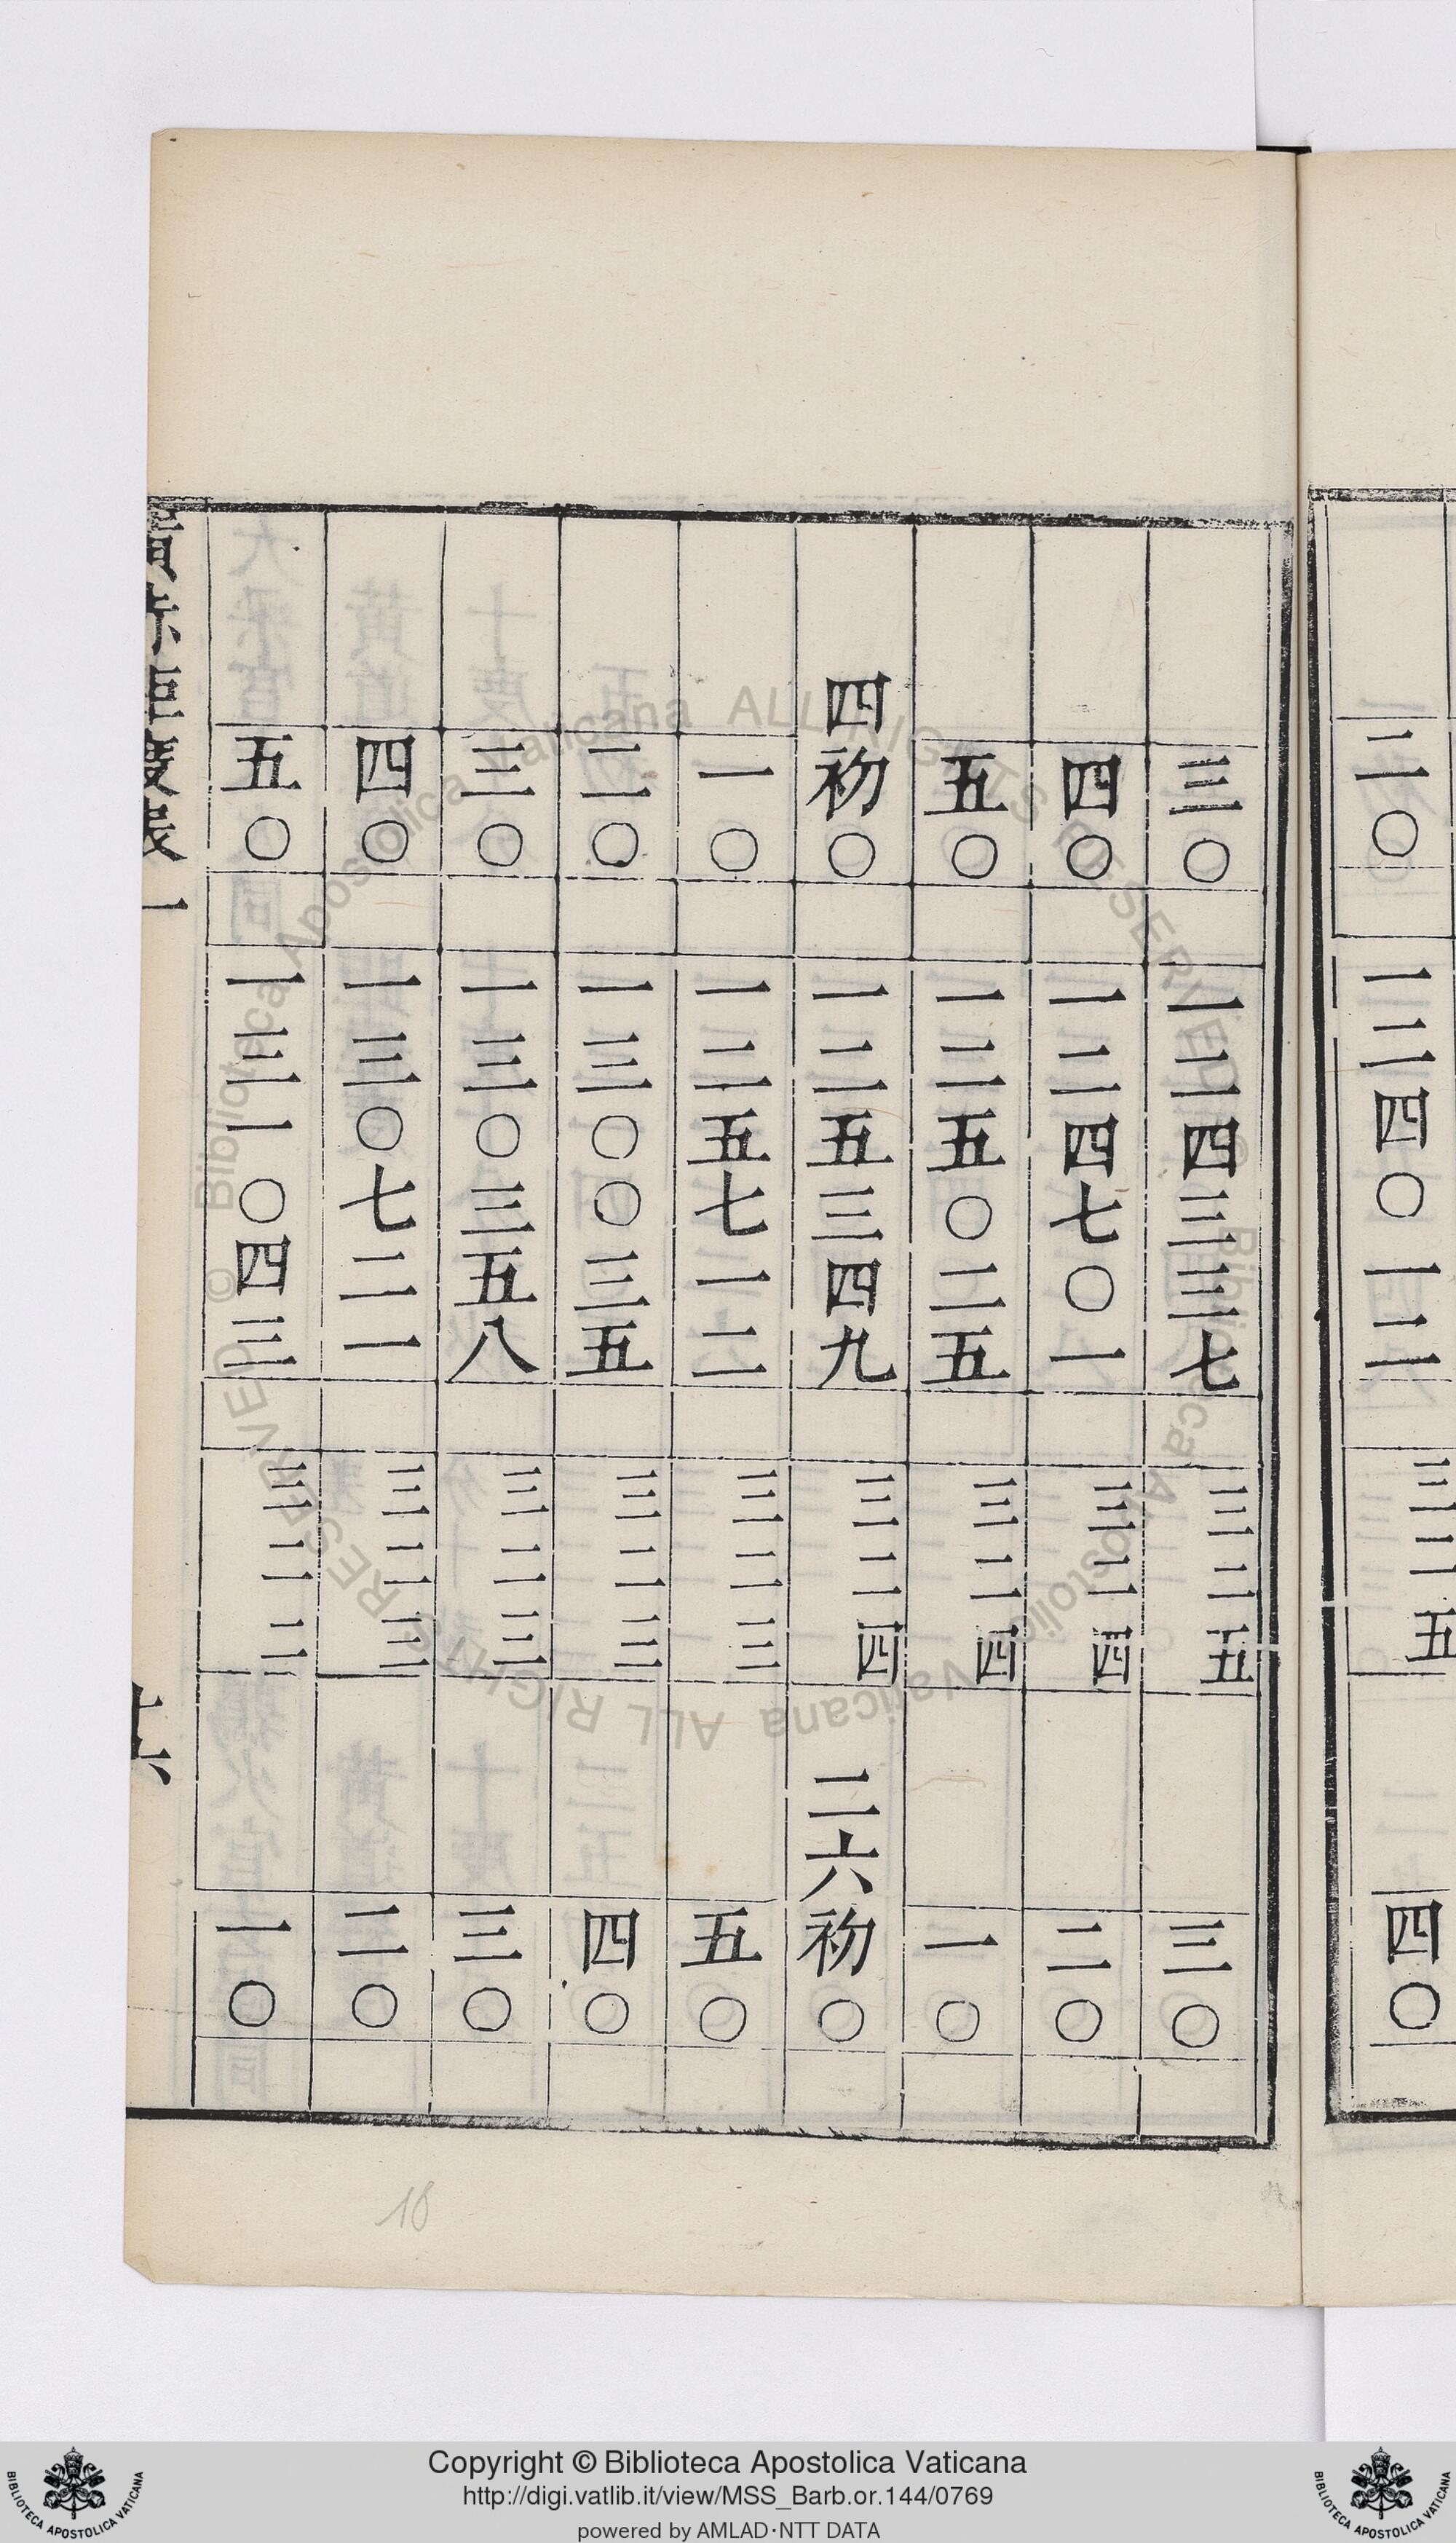 二〇 一二四〇一二 三二五 四〇
三〇 一二四三三七 三二五 三〇
四〇 一二四七〇一 三二四 二〇
五〇 一二五〇二五 三二四 一〇
四初〇 一二五三四九 三二四 二六初〇
一〇 一二五七一二 三二三 五〇
二〇 一三〇〇三五 三二三 四〇
三〇 一三〇三五八 三二三 三〇
四〇 一三〇七二一 三二三 二〇
五〇 一三一〇四三 三二二 一〇
16
© Biblioteca Apostolica Vaticana ALL RIGHTS RESERVED
© Biblioteca Apostolica Vaticana ALL RIGHTS RESERVED
BIBLIOTECA APOSTOLICA VATICANA
Copyright © Biblioteca Apostolica Vaticana
http://digi.vatlib.it/view/MSS_Barb.or.144/0769
powered by AMLAD·NTT DATA
BIBLIOTECA APOSTOLICA VATICANA